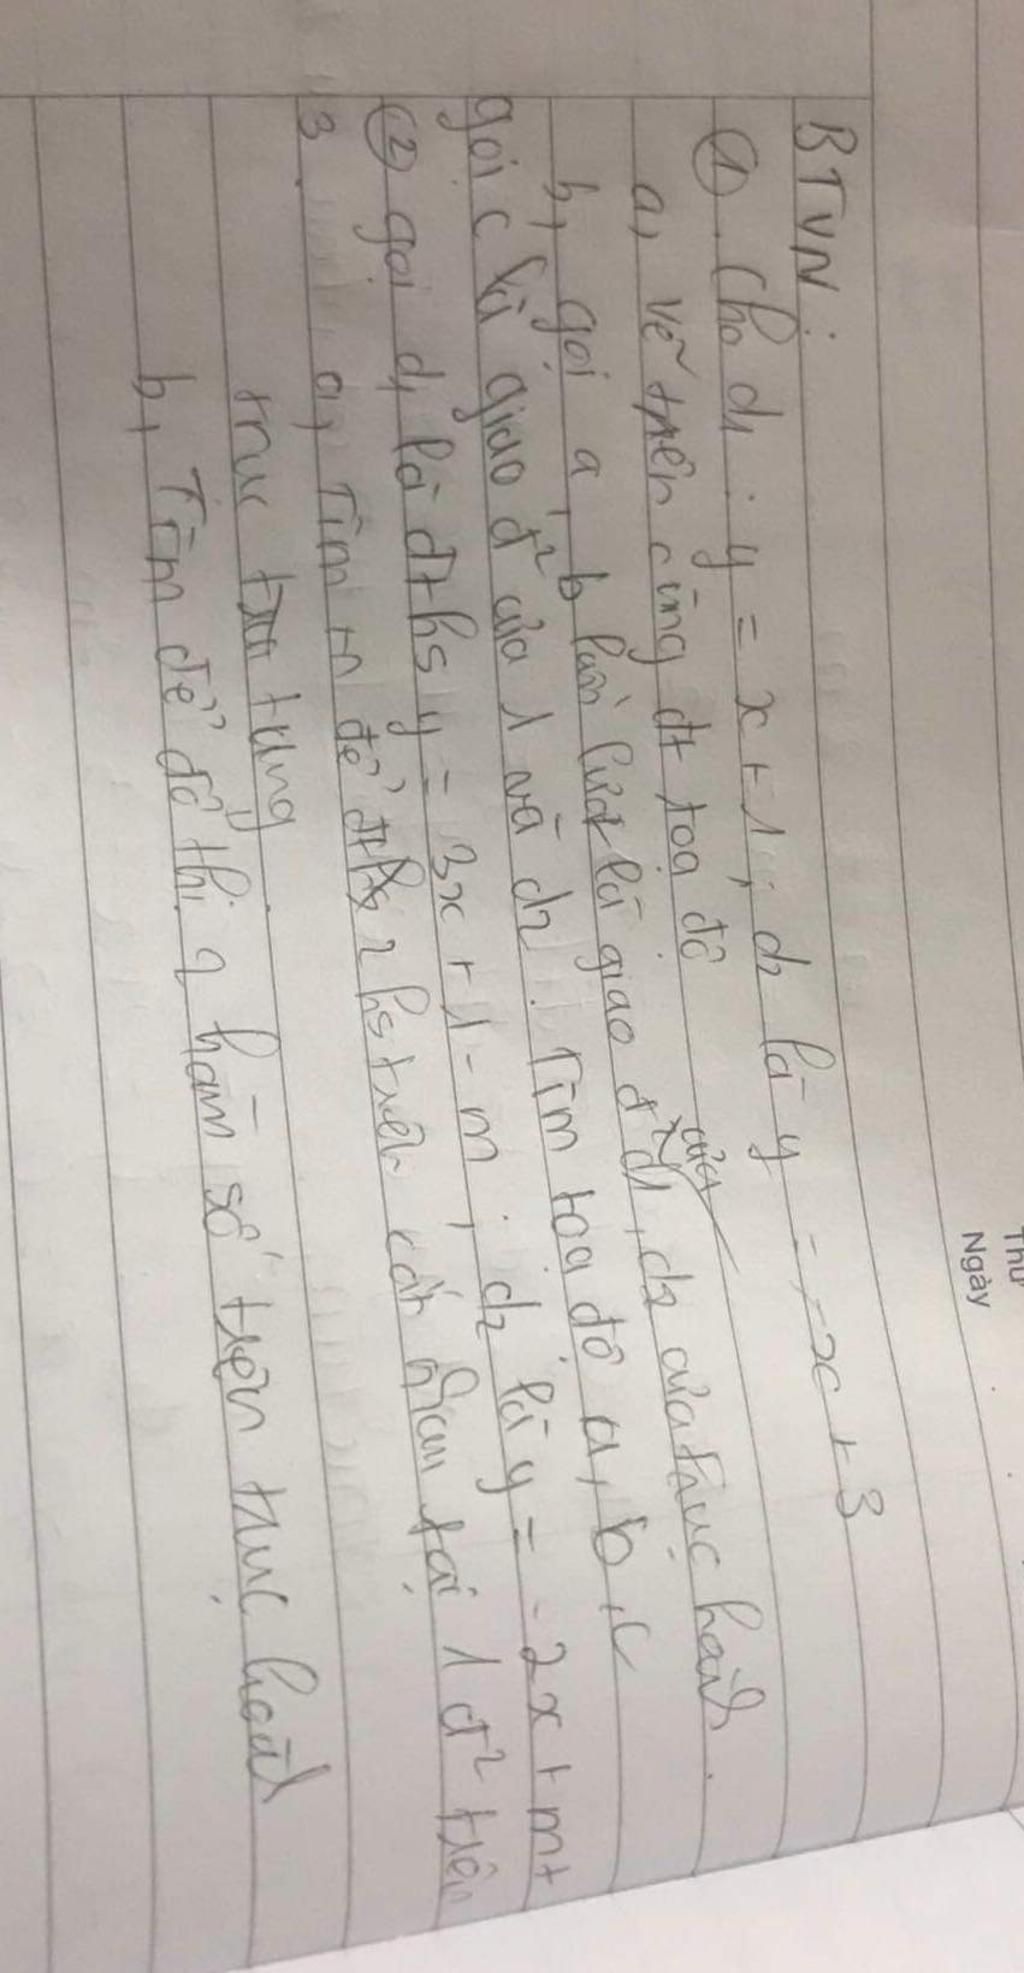 Thứ
Ngày
BTVN:
① . Cho d1 : y = x + 1 ; d2 là y = -x + 3
a, Vẽ trên cùng đt tọa độ
b, gọi a, b lần lượt là giao đ² của d1, d2 của trục hoành.
gọi c là giao đ² của 1 và d2. Tìm tọa độ a, b, c
② gọi d1 là đths y = 3x + 1 - m ; d2 là y = -2x + m +
3 a, Tìm m để đt 2 hs trên cắt nhau tại 1 đ² trên
trục tung
b, Tìm để đồ thị 2 hàm số trên trục hoành